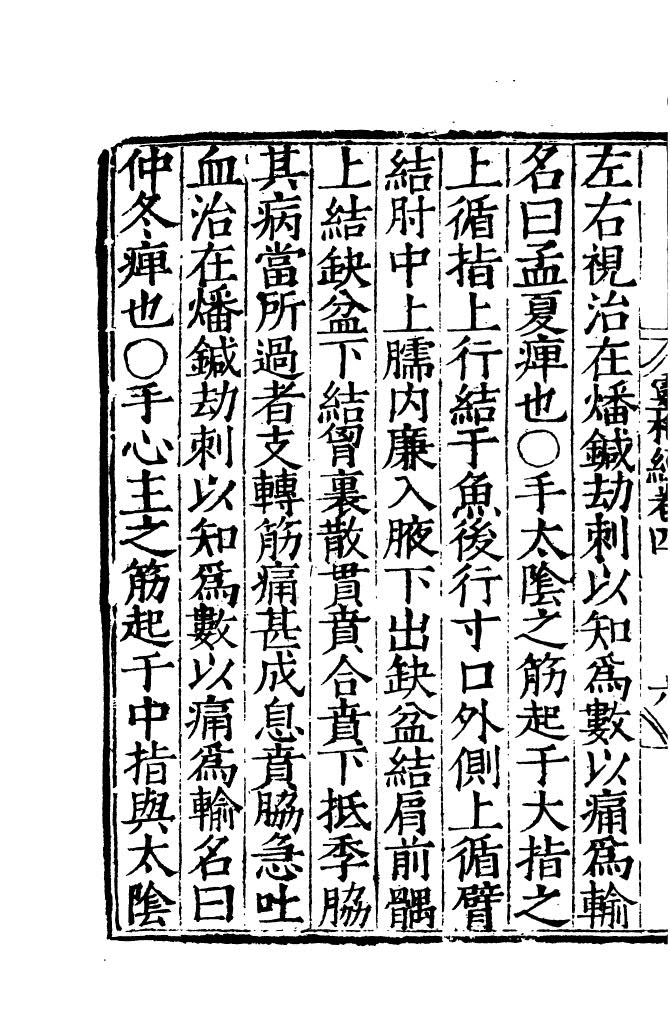 左右視治在燔鍼劫刺以知爲數以痛爲輸
名曰孟夏痺也○手太陰之筋起于大指之
上循指上行結于魚後行寸口外側上循臂
結肘中上臑内廉入腋下出缺盆結肩前髃
上結缺盆下結胷裏散貫賁合賁下抵季脇
其病當所過者支轉筋痛甚成息賁脇急吐
血治在燔鍼劫刺以知爲數以痛爲輸名曰
仲冬痺也○手心主之筋起于中指與太陰
經卷四